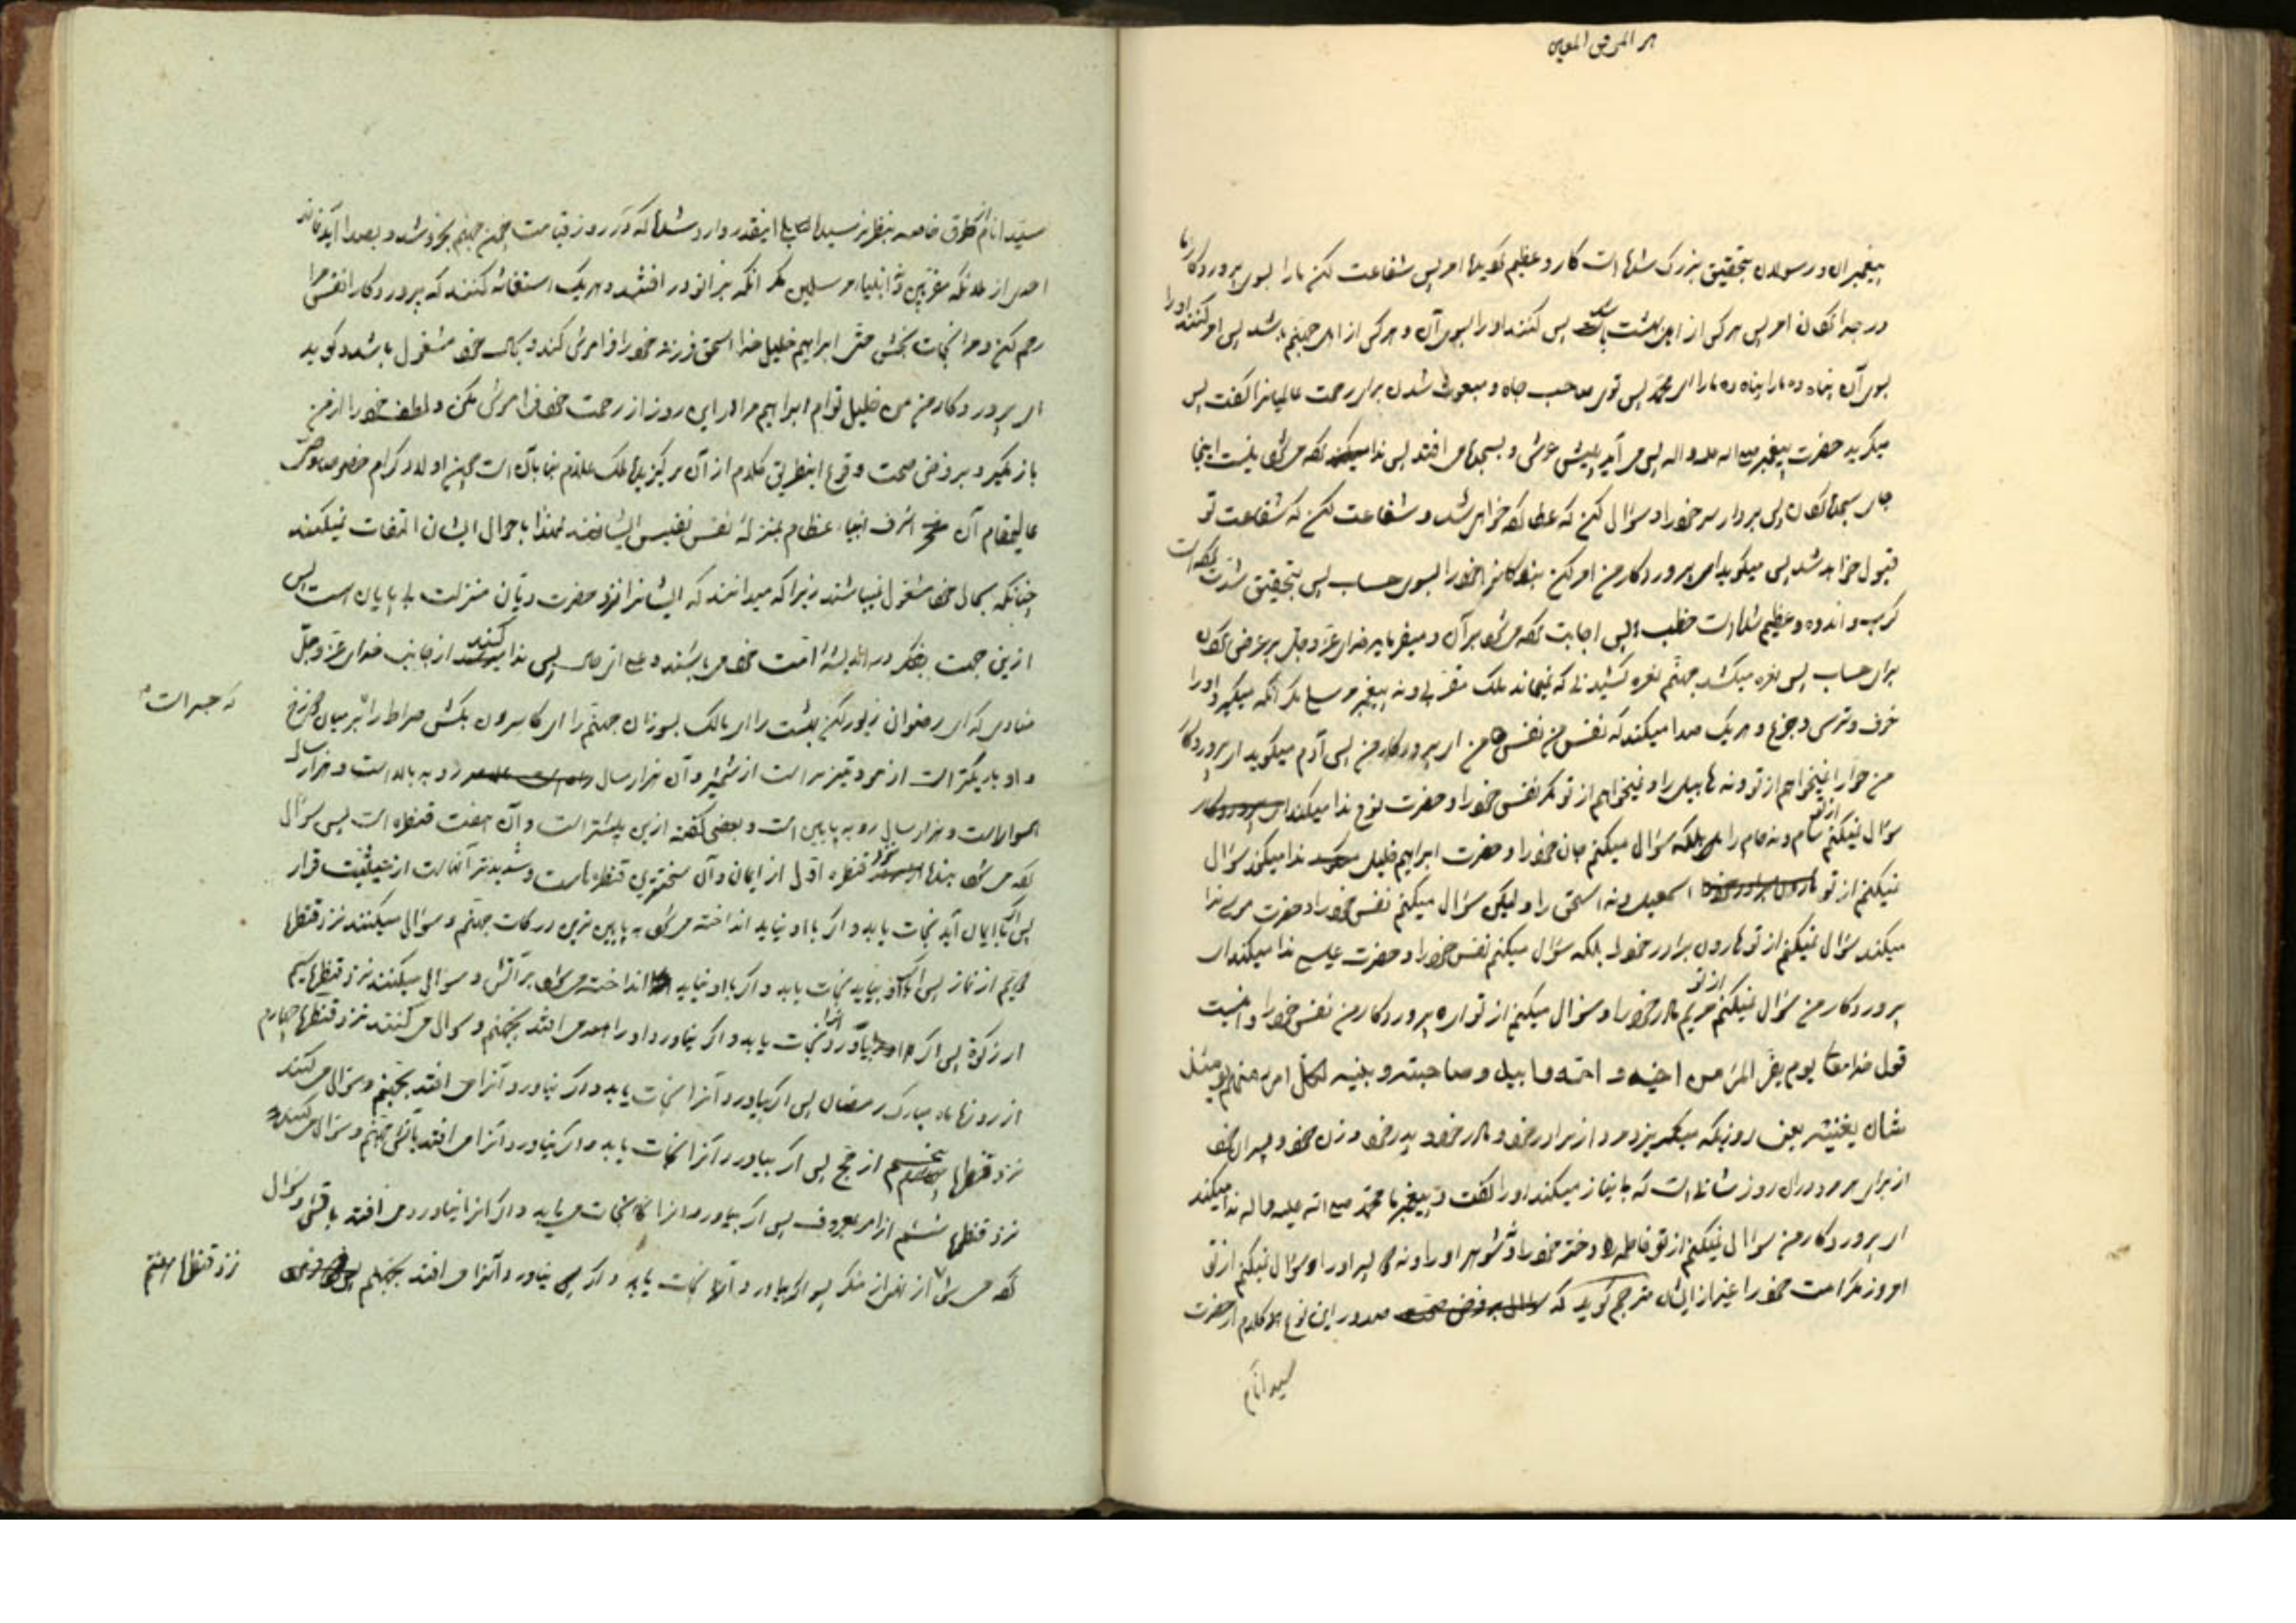 هو الموفق المعین
پیغمبران و رسولان بتحقیق بزرک شده است کار و عظیم کردیده امر پس شفاعت بکن ما را بسوی پروردکار ما
در جدا کردن امر پس هر کس از اهل بهشت باشد پس کنند او را بسوی آن و هر کس از اهل جهنم باشد پس امر کنند او را
بسوی آن پناه ده ما را پناه ده ما را ای محمد پس توی صاحب جاه و مبعوث شدن برای رحمت عالمیان را کفت پس
میکرید حضرت پیغمبر صلی اله علیه و اله پس می آید پیش عرش و بسجده می افتد پس ندا کرده می شود نیست اینجا
جای سجده کردن پس بردار سر خود را و سؤال کن که عطا کرده خواهی شد و شفاعت کن که شفاعت تو
قبول خواهد شد پس میکوید ای پروردکار من امر کن بندکانرا خود را بسوی حساب پس بتحقیق شدت کرده است
کرب و اندوه و عظیم شده است خطب پس اجابت کرده می شود بر آن و میفرماید خدای عز و جل بر عرض کردن
برای حساب پس نعره میکشد جهنم نعره کشیدنی که نمیماند ملک مقربی و نه پیغمبر مرسلی مکر آنکه میکیرد او را
خوف و ترس و جزع و هر یک صدا میکند که نفس من نفس من ای پروردکار من پس آدم میکوید ای پروردکار
من حوا را نمیخواهم از تو و نه هابیل را و نمیخواهم از تو مکر نفس خود را و حضرت نوح ندا میکند ای پروردکار
سؤال نمیکنم از تو سام و نه حام را بلکه سؤال میکنم جان خود را و حضرت ابراهیم خلیل ندا میکند سؤال
نمیکنم از تو اسمعیل و نه اسحق را و لیکن سؤال میکنم نفس خود را و حضرت موسی ندا
میکند سؤال نمیکنم از تو هارون برادر خود را بلکه سؤال میکنم نفس خود را و حضرت عیسی ندا میکند ای
پروردکار من سؤال نمیکنم از تو مریم مادر خود را و سؤال میکنم از تو ای پروردکار من نفس خود را و اینست
قول خدا تعالی یوم یفر المرء من اخیه و امه و ابیه و صاحبته و بنیه لکل امرء منهم یومئذ
شان یغنیه یعنی روزیکه میکریزد مرد از برادر خود و مادر خود و پدر خود و زن خود و پسران خود
از برای هر مرد در آن روز شانی است که بی نیاز میکند او را کفت و پیغمبر ما محمد صلی الله علیه و اله ندا میکند
ای پروردکار من سؤال نمیکنم از تو فاطمه دختر خود را و شوهر او را و نه دو پسر او را و سؤال نمیکنم از تو
امروز مکر امت خود را غیر از ایشان مترجم کوید که صدور این نوع کلام از حضرت
سید انام
سید انام از طرق خاصه بنظر نرسیده اینقدر وارد شده که در روز قیامت چون جهنم بخروشد و بصدا آید نماند
احدی از ملائکه مقربین و انبیاء مرسلین مکر آنکه بزانو در افتند و هر یک استغاثه کنند که پروردکارا نفسی مرا
رحم کن و مرا نجات بخش حتی ابراهیم خلیل خدا اسحق فرزند خود را فراموش کند و بحال خود مشغول باشد و کوید
ای پروردکار من من خلیل توام ابراهیم مرا در این روز از رحمت خود فراموش مکن و لطف خود را از من
باز مکیر و بر فرض صحت وقوع اینطریق کلام از آن برکزیده ملک علام بنا بآن است چون اولاد کرام خصوصا
عالیمقام آن اشرف انبیاء عظام بمنزله نفس نفیس ایشانند لهذا باحوال ایشان التفات نمیکنند
چنانکه بحال خود مشغول نمیباشند زیرا که میدانند که ایشانرا نزد حضرت دیان منزلت بی پایان است پس
ازین جهت بفکر و اندیشه امت خود می باشند و علی ای حال پس ندا کنند از جانب خدای عز و جل
منادی که ای رضوان زیور کن بهشت را ای مالک بسوزان جهنم را ای کاسرون بکش صراط را بر میان دوزخ
که جسر است
و او باریکتر است از مو و تیزتر است از شمشیر و آن هزار سال رو به بالا است و هزار سال
هموار است و هزار سال رو به پایین است و بعضی کفته ازین بیشتر است و آن هفت قنطره است پس سؤال
کرده می شود بنده از نزد قنطره اول از ایمان و آن سختترین قنطره هاست و شدیدتر آنهاست از حیثیت قرار
پس اکر با ایمان آید نجات یابد و اکر با او نیاید انداخته می شود به پایین ترین درکات جهنم و سؤال میکنند نزد قنطره
دویم از نماز پس اکر با او بیاید نجات یابد و اکر با او نیاید انداخته می شود بر آتش و سؤال میکنند نزد قنطره سیم
از زکوة پس اکر بیاورد آنرا نجات یابد و اکر نیاورد او را می افتد بجهنم و سؤال می کنند نزد قنطره چهارم
از روزه ماه مبارک رمضان پس اکر بیاورد آنرا نجات یابد و اکر نیاورد آنرا می افتد بجهنم و سؤال می کنند
نزد قنطره پنجم از حج پس اکر بیاورد آنرا نجات یابد و اکر نیاورد آنرا می افتد بآتش جهنم و سؤال می کنند
نزد قنطره ششم از امر بمعروف پس اکر بیاورد آنرا نجات می یابد و اکر آنرا نیاورد می افتد بآتش و سؤال
کرده می شود از نهی از منکر پس اکر بیاورد آنرا نجات یابد و اکر نیاورد آنرا می افتد بجهنم
نزد قنطره هفتم